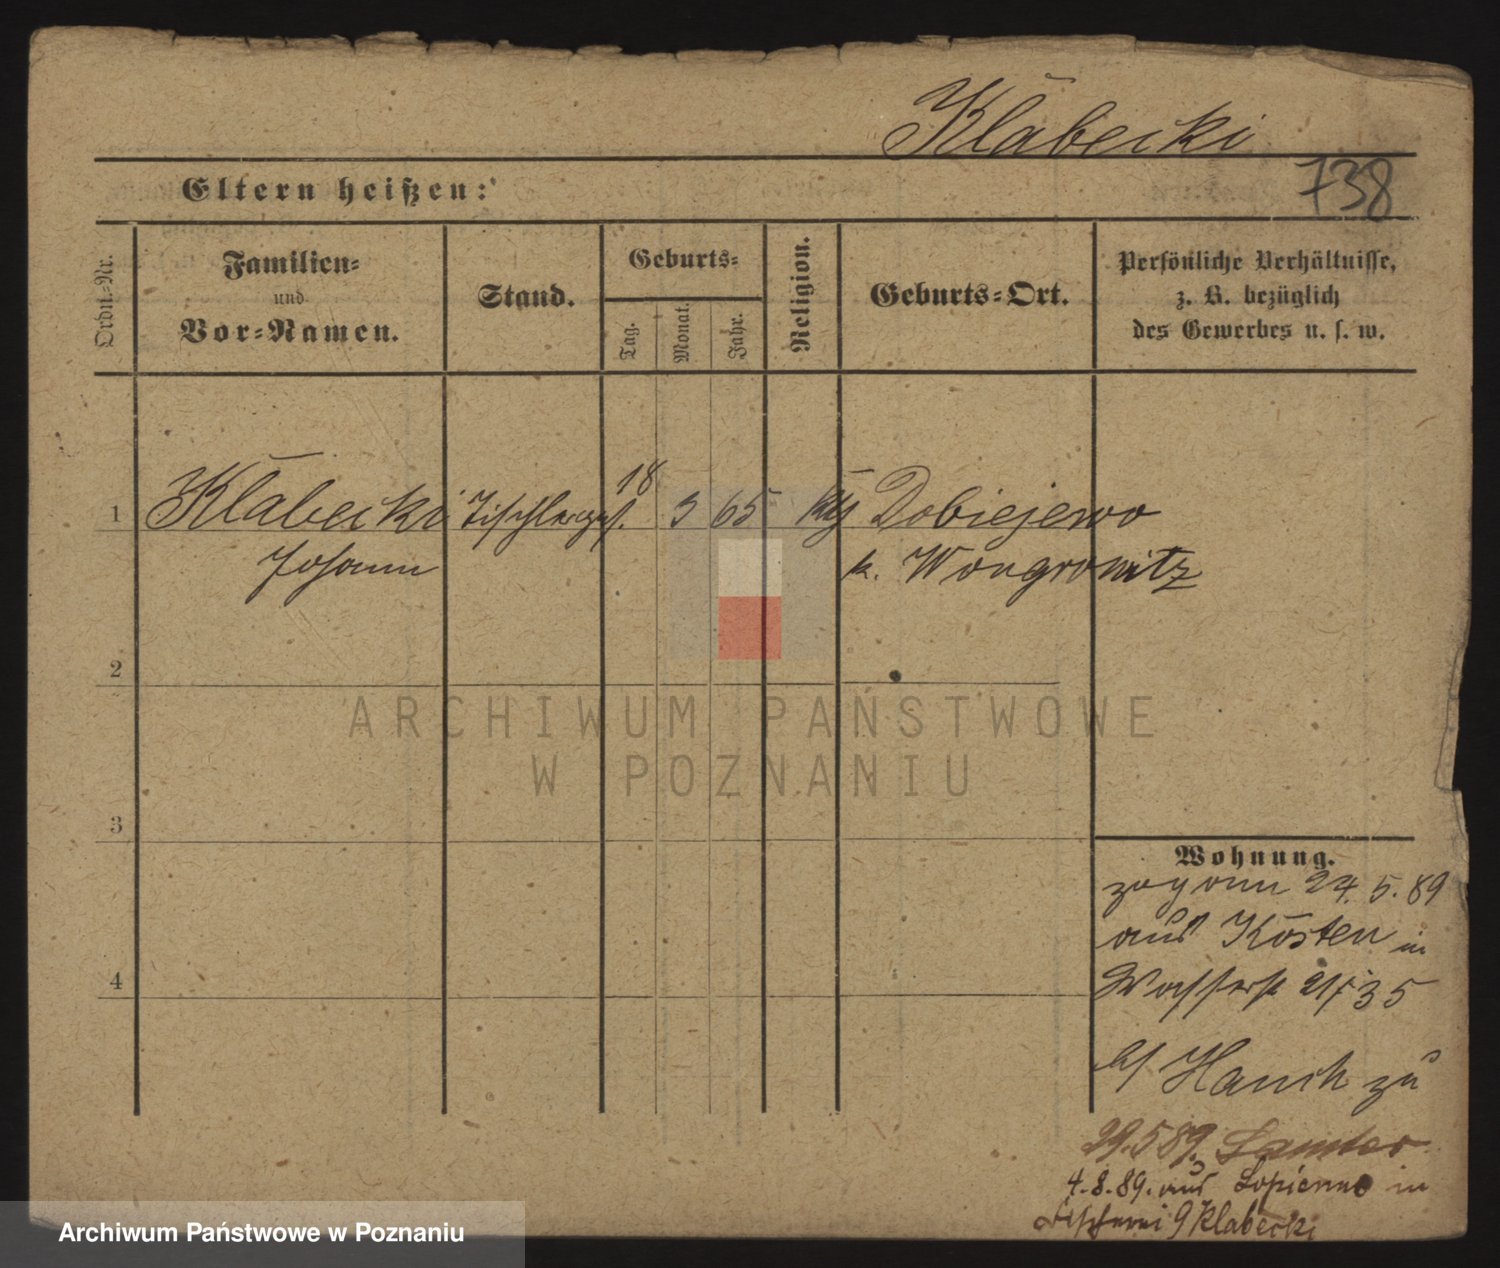 Klabecki
738
Eltern heißen:
Ordn.-Nr.
Familien-
und
Vor-Namen.
Stand.
Geburts-
Tag.
Monat.
Jahr.
Religion.
Geburts-Ort.
Persönliche Verhältnisse,
z. B. bezüglich
des Gewerbes u. s. w.
1 Klabecki Tischlerges. 18 3 65 kth Dobiejewo
Johann k. Wongrowitz
2
ARCHIWUM PAŃSTWOWE
W POZNANIU
3
4
Wohnung.
zog am 24.5.89
aus Kosten in
Wasserst 21/35
b/ Hauch zu
29.5.89. Samter
4.8.89. aus Lopienno in
Fischerei 9 Klabecki
Archiwum Państwowe w Poznaniu